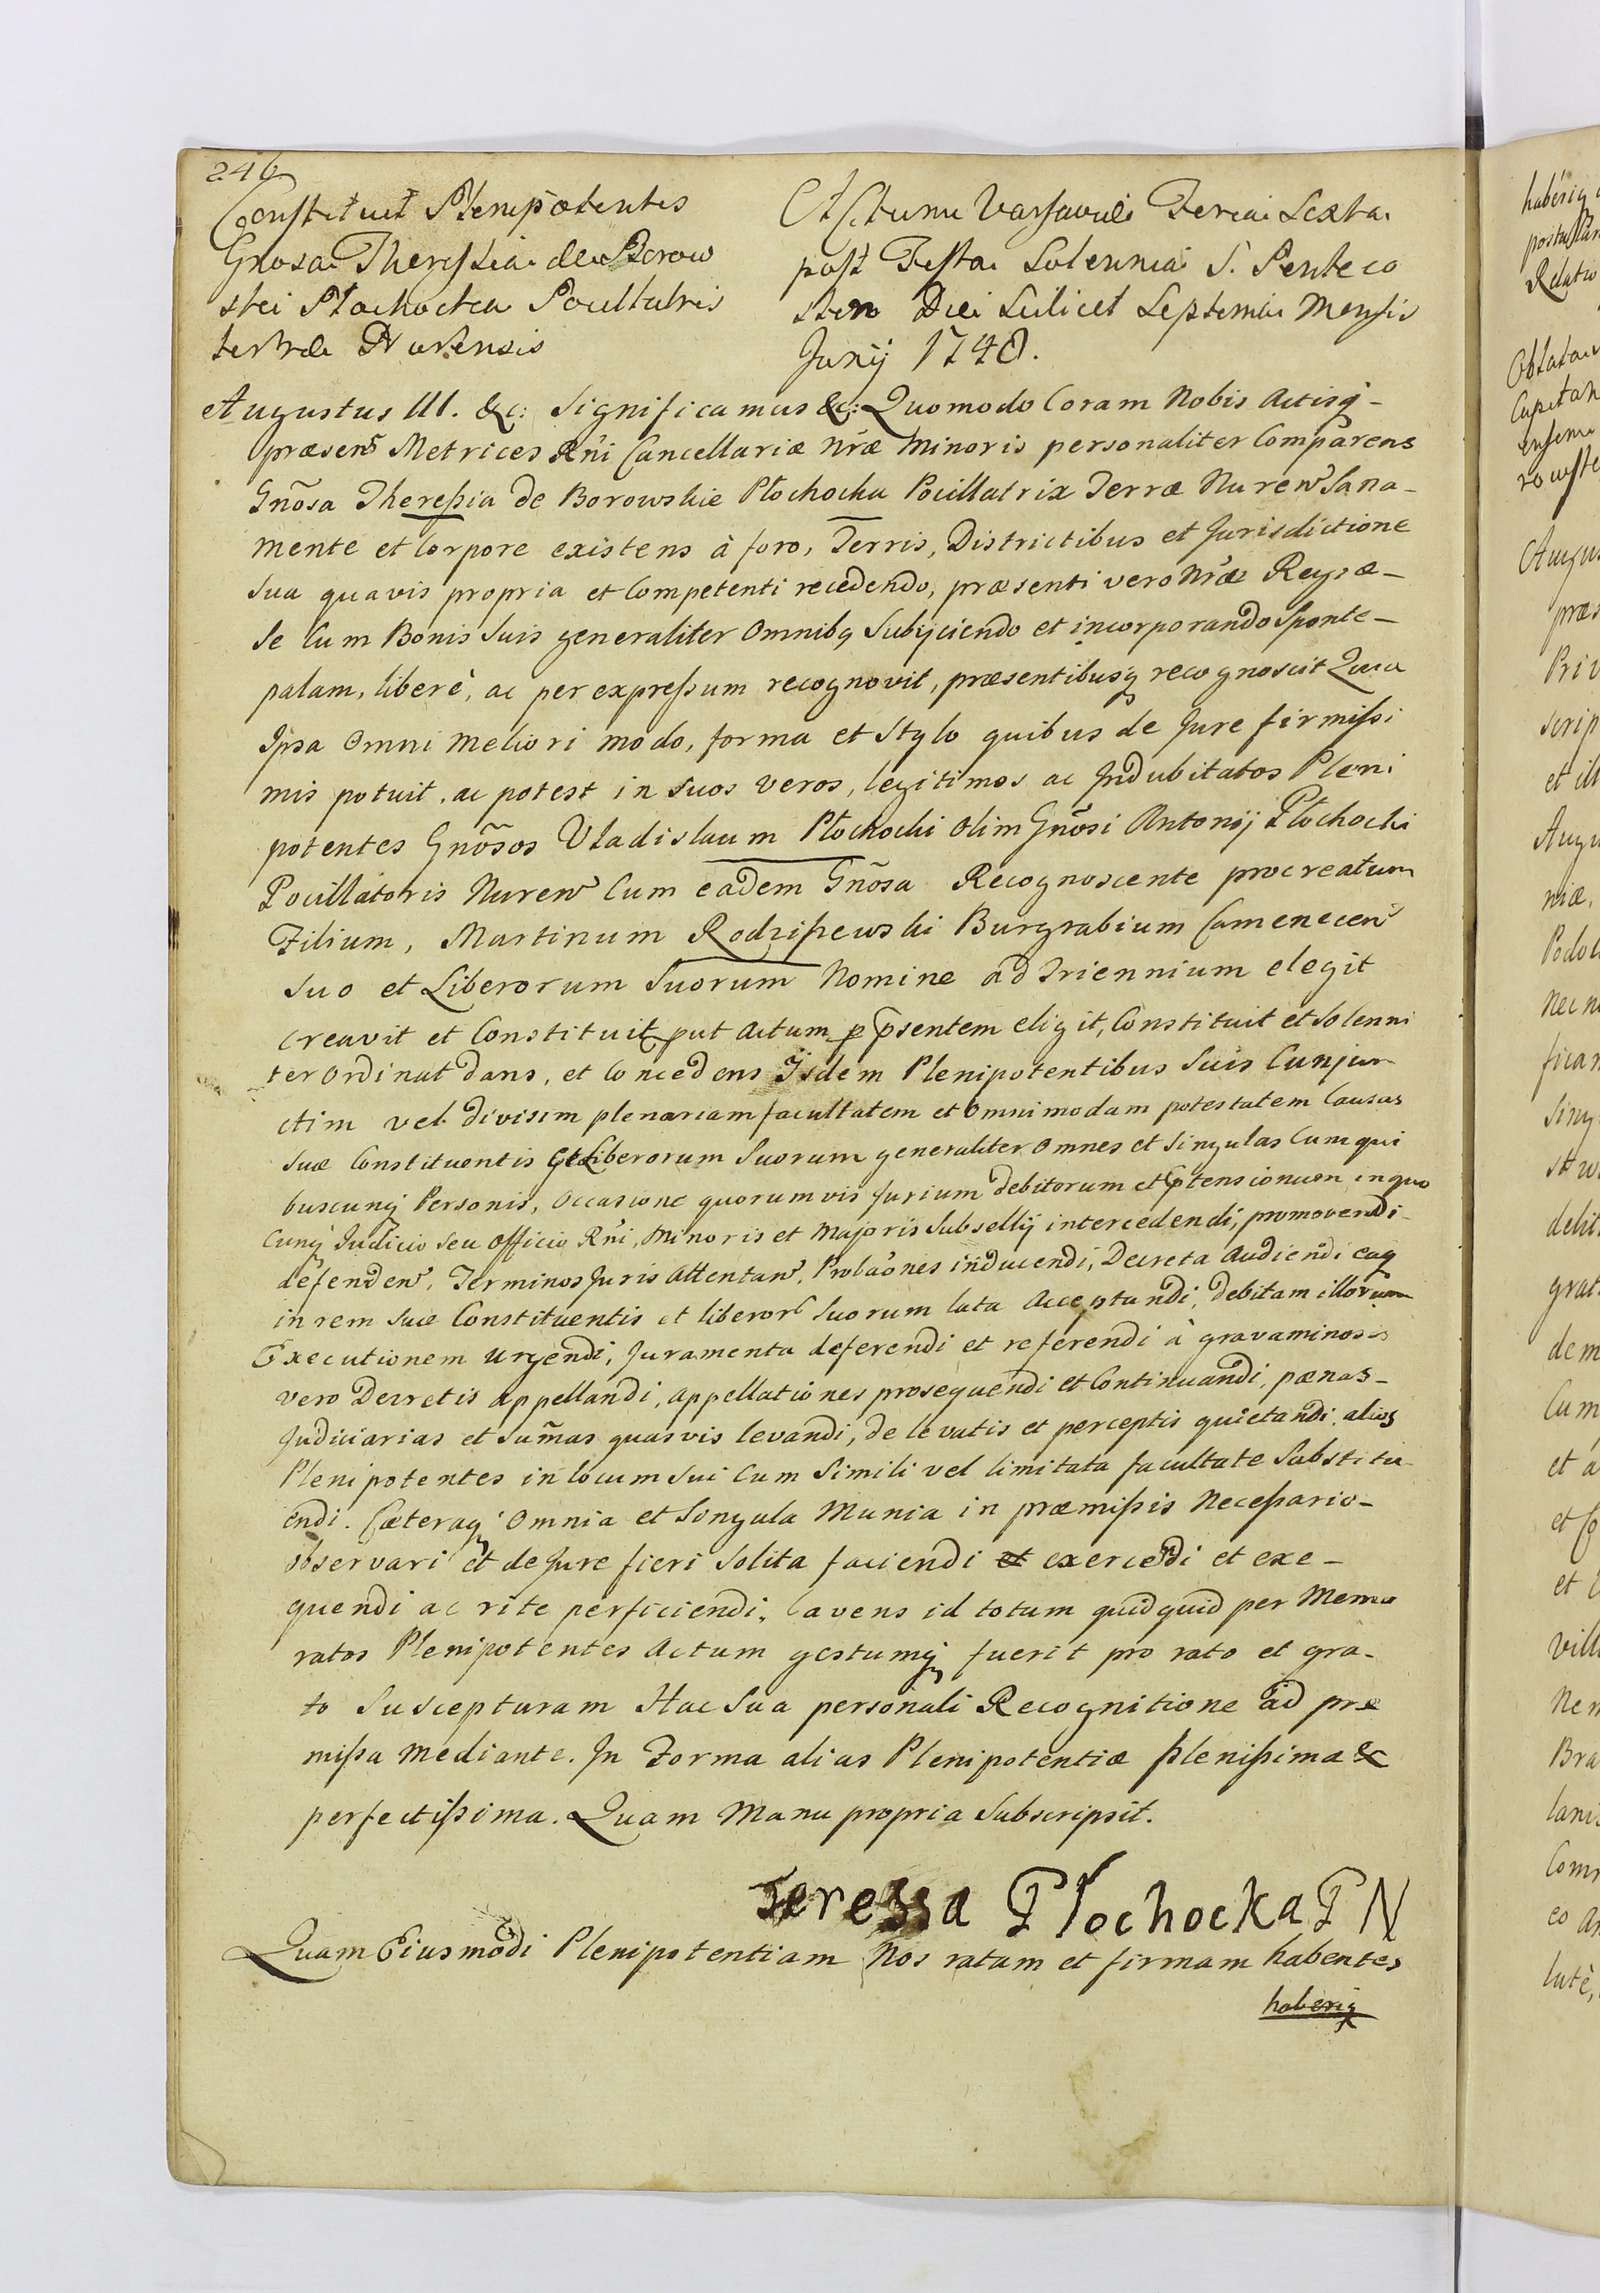 246
Constituit Plenipotentes
Gnosa Theressia de Borow
skei Plochocka Pocillatrix
terræ Nurensis
Actum Varsaviæ Feria Sexta
post Festa Solennia S. Penteco
sten Die Scilicet Septema Mensis
Junij 1748.
Augustus III. &c: Significamus &c: Quomodo Coram Nobis Actisq̃
præsen̄ Metrices Rñi Cancellariæ Nrãe Minoris personaliter Comparens
Gnõsa Theressia de Borowskie Płochocka Pocillatrix Terræ Nuren̄ Sana
mente et Corpore existens à foro, Terris, Districtibus et Jurisdictione
sua quavis propria et Competenti recedendo, præsenti vero Nrãe Regiæ
Se Cum Bonis Suis generaliter Omnibq Subijciendo et incorporando Sponte
palam, liberè, ac per expressum recognovit, præsentibusq̃ recognoscit Quia
Ipsa Omni Meliori modo, forma et Stylo quibus de Jure firmissi
mis potuit, ac potest in suos veros, legitimos ac Indubitatos Pleni
potentes Gnõsos Uładislaum Płochocki olim Gnõsi Antonij Płochocki
Pocillatoris Nuren̄ Cum eadem Gnõsa Recognoscente procreatum
Filium, Martinum Rodziszewski Burgrabium Camenecen̄
suo et Liberorum Suorum Nomine ad Triennium elegit
creavit et Constituit put Actum p p̃sentem eligit, Constituit et Solenni
ter Ordinat dans, et Concedens Iisdem Plenipotentibus Suis Cunjun
ctim vel divisim plenariam facultatem et Omnimodam potestatem Causas
suæ Constituentis et Liberorum Suorum generaliter Omnes et Singulas Cum qui
buscunq̃ Personis, Occasione quorumvis Jurium debitorum et p̃tensionum in quo
cunq̃ Iudicio seu Officio Rñi, Minoris et Majoris Subsellij intercedendi, promovendi
defenden̄, Terminos Juris Attentan̄, Prolaõnes inducendi, Decreta Audiendi eaq
in rem suæ Constituentis et liberor̄ Suorum lata Acceptandi, debitam illorum
Executionem Urgendi, Juramenta deferendi et referendi à gravaminosis
vero Decretis appellandi, appellationes prosequendi et Continuandi, pænas
Judiciarias et Sum̃as quasvis levandi, de levatis et perceptis quietandi, alios
Plenipotentes in locum sui Cum Simili vel limitata facultate Substitu
endi. Cæteraq̃ Omnia et Singula Munia in præmissis Necessario
observari et de Jure fieri Solita faciendi et exercendi et exe
quendi ac rite perficiendi, Cavens id totum quidquid per Memo
ratos Plenipotentes Actum gestumq̃ fuerit pro rato et gra
to Suscepturam Hac Sua personali Recognitione ad præ
missa Mediante. In Forma alias Plenipotentiæ plenissima &
perfectissima. Quam Manu propria Subscripsit.
Teressa Płochocka P N
Quam Eiusmodi Plenipotentiam Nos ratam et firmam habentes
haberiq̃
haberiq
Relatio
Augus
præs
Priv
scrip
et ill
Augu
niæ,
Podol
Nec n
fican
Sing
debit
grat
dem
Cum
et a
et Co
et
vill
Nem
Bra
lani
Comm
eo an
lutè,